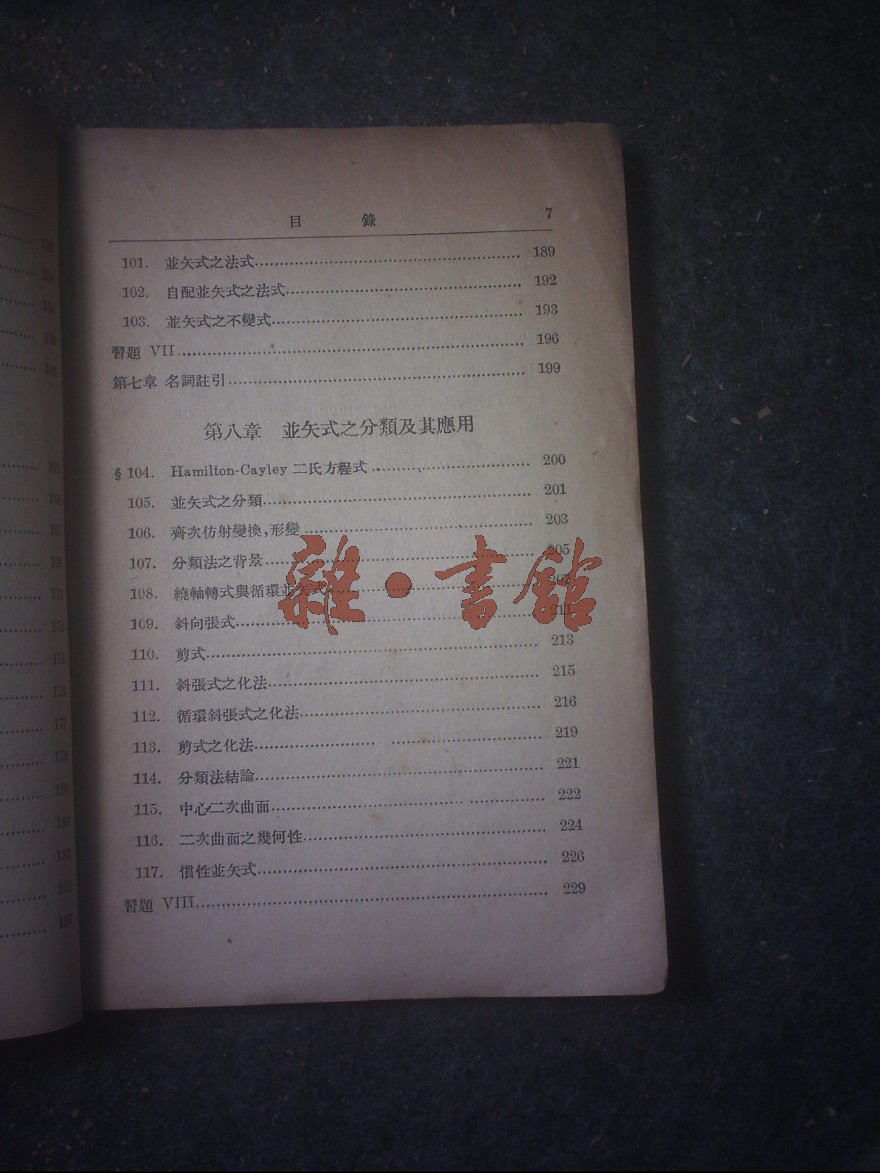 目 錄 7
101. 並矢式之法式 189
102. 自配並矢式之法式 192
103. 並矢式之不變式 193
習題 VII 196
第七章 名詞註引 199
第八章 並矢式之分類及其應用
§ 104. Hamilton-Cayley 二氏方程式 200
105. 並矢式之分類 201
106. 齊次仿射變換,形變 203
107. 分類法之背景 205
108. 繞軸轉式與循環並矢式
109. 斜向張式 211
110. 剪式 213
111. 斜張式之化法 215
112. 循環斜張式之化法 216
113. 剪式之化法 219
114. 分類法結論 221
115. 中心二次曲面 222
116. 二次曲面之幾何性 224
117. 慣性並矢式 226
習題 VIII 229
雜·書館